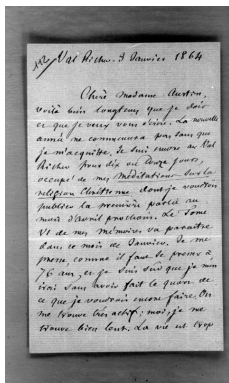 112
Val Richer. 3 Janvier 1864
Chère Madame Austin,
Voilà bien longtems que je dois
et que je veux vous écrire. La nouvelle
année ne commencera pas sans que
je m'acquitte. Je suis encore au Val
Richer pour dix ou douze jours,
occupé de mes Méditations sur la
religion Chrétienne dont je voudrois
publier la première partie au
mois d'avril prochain. Le Tome
VI de mes Mémoires va paraître
dans ce mois de Janvier. Je me
presse, comme il faut se presser à
76 ans, et je suis sûr que je m'en
irai sans avoir fait le quart de
ce que je voudrais encore faire. On
me trouve très actif; moi, je me
trouve bien lent. La vie est trop